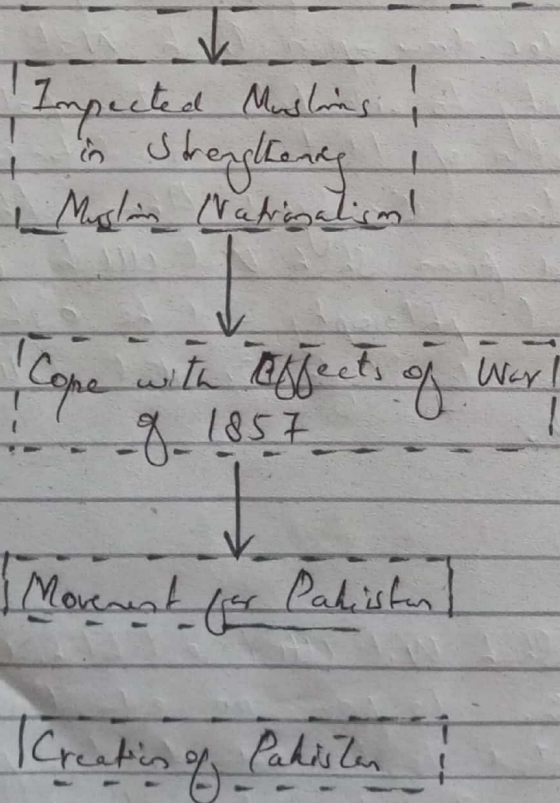 Impacted Muslims
in Strengthening
Muslim Nationalism
Cope with Effects of War
of 1857
Movement for Pakistan
Creation of Pakistan